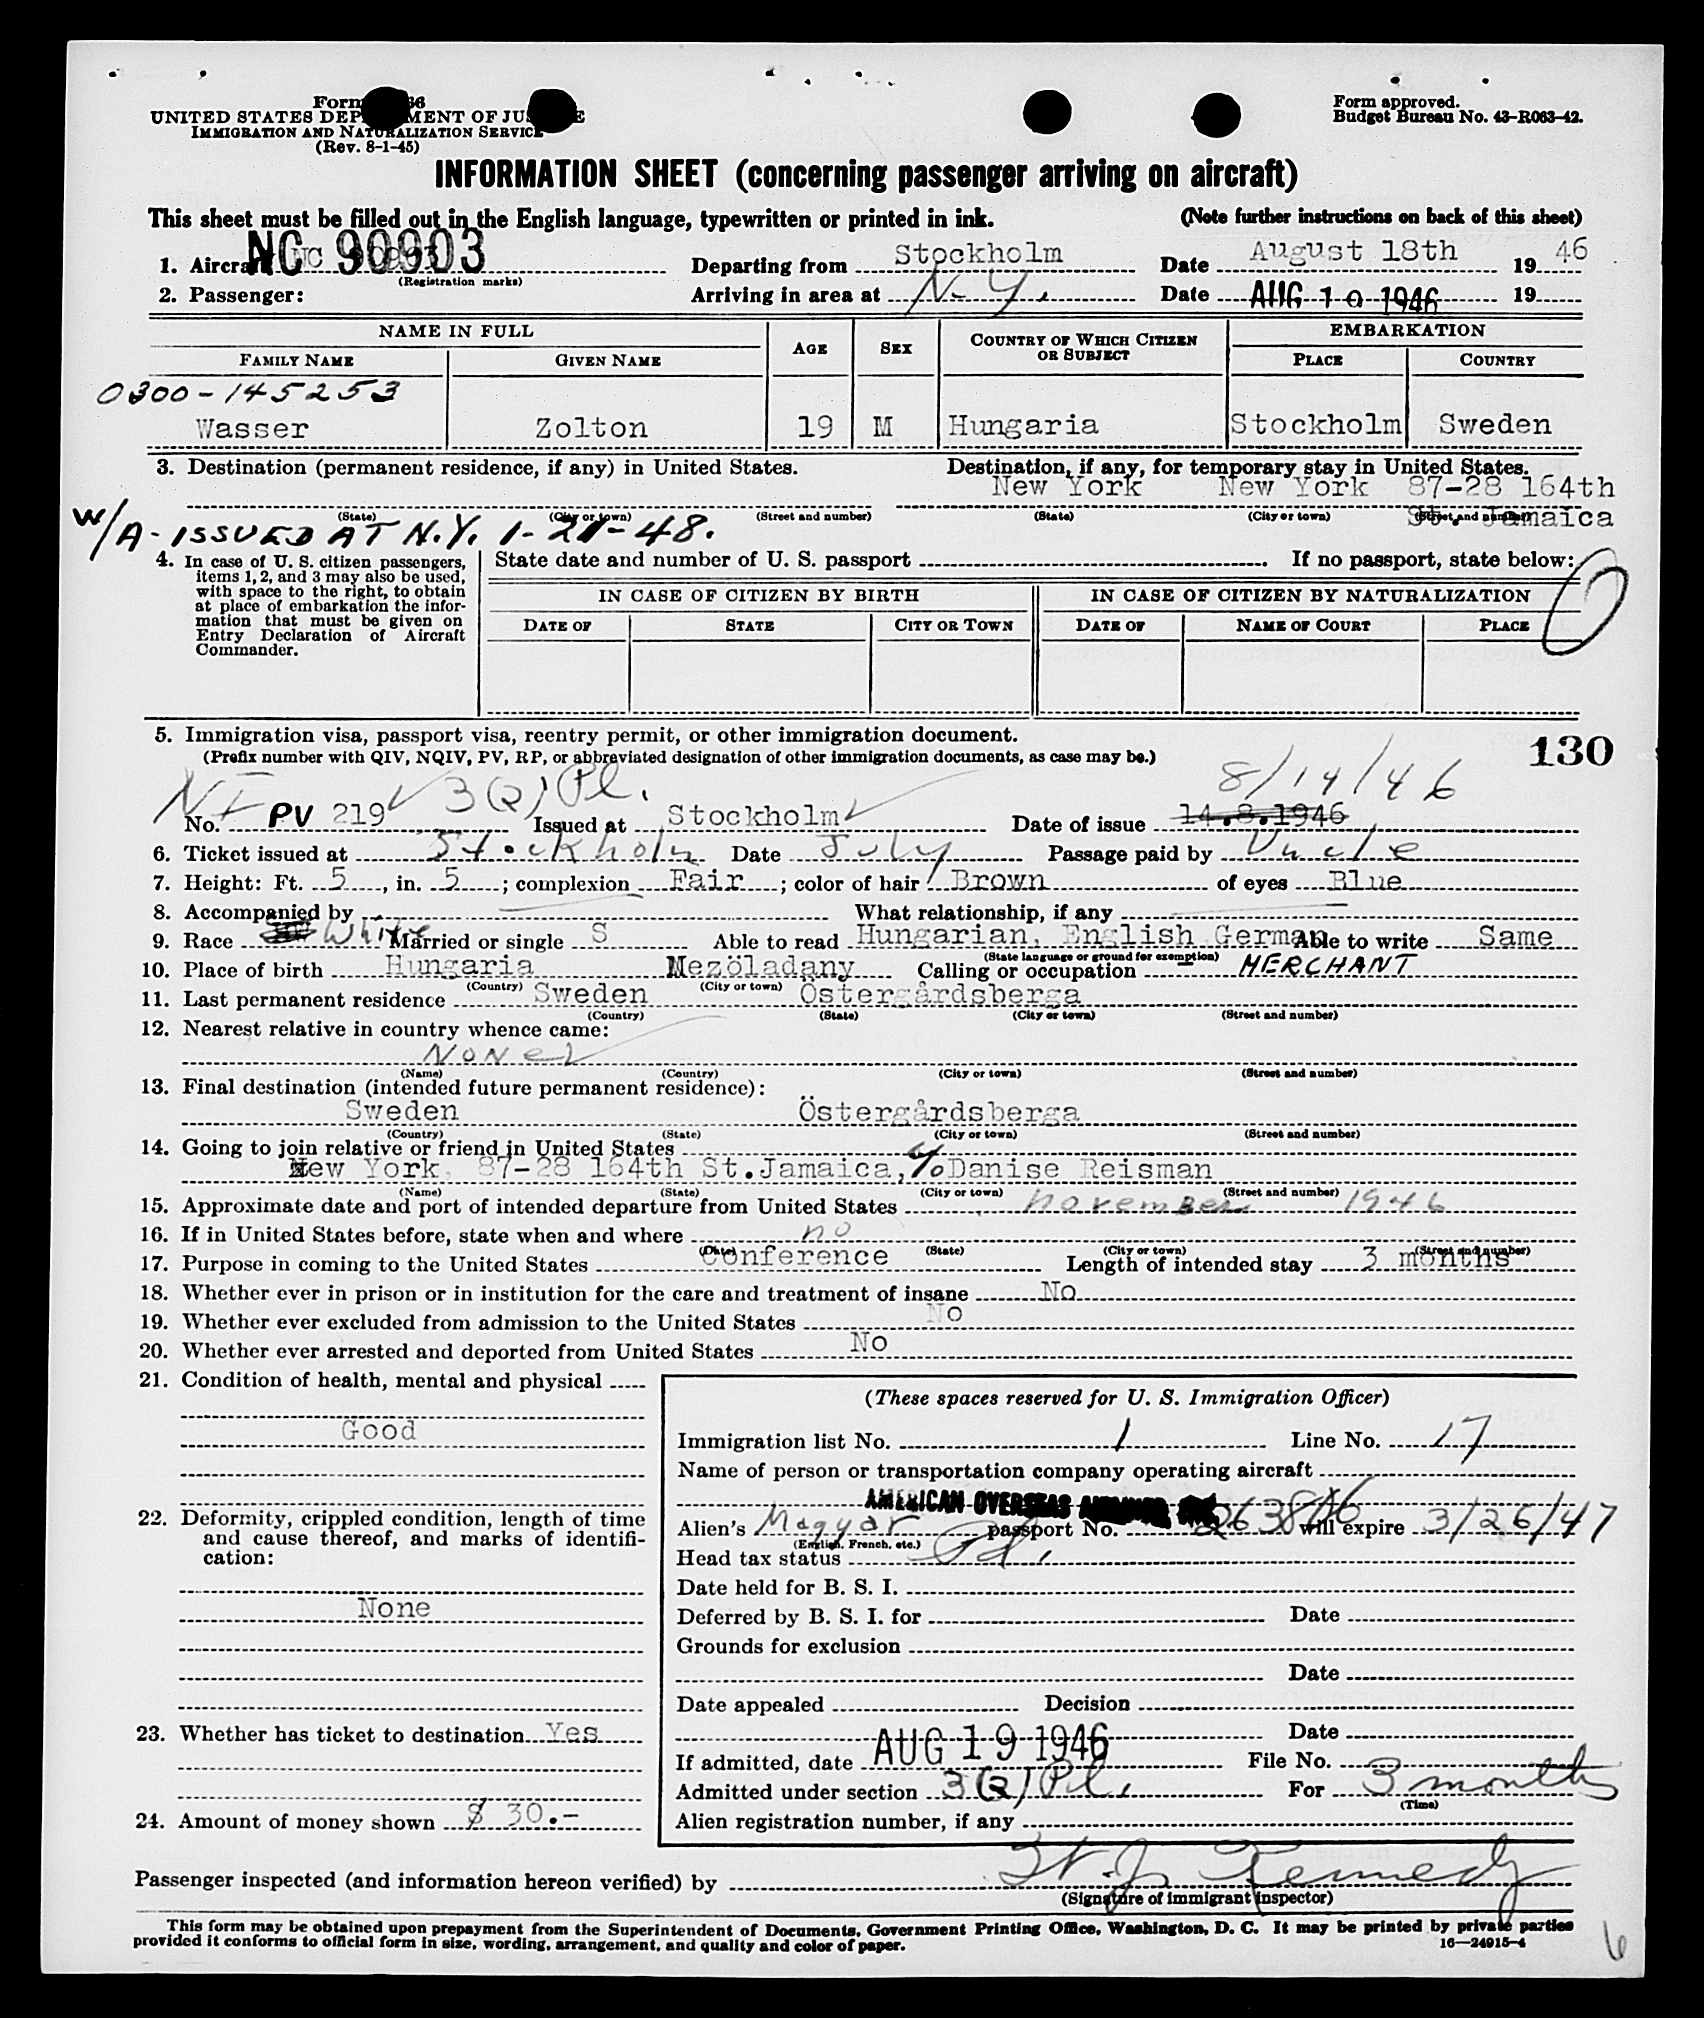 Form 66
UNITED STATES DEP MENT OF JUS E
IMMIGRATION AND NATURALIZATION SERVICE
(Rev. 8-1-45)
Form approved.
Budget Bureau No. 43-R063-42.
INFORMATION SHEET (concerning passenger arriving on aircraft)
This sheet must be filled out in the English language, typewritten or printed in ink. (Note further instructions on back of this sheet)
1. Aircraft NC 90903 Departing from Stockholm Date August 18th 1946
(Registration marks)
2. Passenger: Arriving in area at N.Y. Date AUG 1 1946 19
NAME IN FULL AGE SEX COUNTRY OF WHICH CITIZEN OR SUBJECT EMBARKATION
FAMILY NAME GIVEN NAME PLACE COUNTRY
0300-145253
Wasser Zolton 19 M Hungaria Stockholm Sweden
3. Destination (permanent residence, if any) in United States. Destination, if any, for temporary stay in United States.
New York New York 87-28 164th
(State) (City or town) (Street and number) (State) (City or town) (Street and number)
St. Jamaica
W/A - ISSUED AT N.Y. 1-21-48.
4. In case of U. S. citizen passengers, items 1, 2, and 3 may also be used, with space to the right, to obtain at place of embarkation the information that must be given on Entry Declaration of Aircraft Commander.
State date and number of U. S. passport If no passport, state below:
IN CASE OF CITIZEN BY BIRTH IN CASE OF CITIZEN BY NATURALIZATION
DATE OF STATE CITY OR TOWN DATE OF NAME OF COURT PLACE
5. Immigration visa, passport visa, reentry permit, or other immigration document.
(Prefix number with QIV, NQIV, PV, RP, or abbreviated designation of other immigration documents, as case may be.) 130
NI 3(2) Pl. 8/14/46
No. PV 219 Issued at Stockholm Date of issue 14.8.1946
6. Ticket issued at Stockholm Date July Passage paid by Uncle
7. Height: Ft. 5, in. 5; complexion Fair; color of hair Brown of eyes Blue
8. Accompanied by What relationship, if any
9. Race White Married or single S Able to read Hungarian, English German Able to write Same
(State language or ground for exemption)
10. Place of birth Hungaria Mezöladány Calling or occupation MERCHANT
(Country) (City or town)
11. Last permanent residence Sweden Östergårdsberga
(Country) (State) (City or town) (Street and number)
12. Nearest relative in country whence came:
None
(Name) (Country) (City or town) (Street and number)
13. Final destination (intended future permanent residence):
Sweden Östergårdsberga
(Country) (State) (City or town) (Street and number)
14. Going to join relative or friend in United States
New York, 87-28 164th St. Jamaica, c/o Danise Reisman
(Name) (State) (City or town) (Street and number)
15. Approximate date and port of intended departure from United States november 1946
16. If in United States before, state when and where no
(Date) (State) (City or town) (Street and number)
17. Purpose in coming to the United States Conference Length of intended stay 3 months
18. Whether ever in prison or in institution for the care and treatment of insane No
19. Whether ever excluded from admission to the United States No
20. Whether ever arrested and deported from United States No
21. Condition of health, mental and physical
Good
22. Deformity, crippled condition, length of time and cause thereof, and marks of identification:
None
23. Whether has ticket to destination Yes
24. Amount of money shown $ 30.-
(These spaces reserved for U. S. Immigration Officer)
Immigration list No. 1 Line No. 17
Name of person or transportation company operating aircraft
AMERICAN OVERSEAS
Alien's Magyar passport No. will expire 3/26/47
(English, French, etc.)
Head tax status Pd.
Date held for B. S. I.
Deferred by B. S. I. for Date
Grounds for exclusion
Date
Date appealed Decision
Date
If admitted, date AUG 19 1946 File No.
Admitted under section 3(2) Pl. For 3 months
(Time)
Alien registration number, if any
Passenger inspected (and information hereon verified) by W. J. Kennedy
(Signature of immigrant inspector)
This form may be obtained upon prepayment from the Superintendent of Documents, Government Printing Office, Washington, D. C. It may be printed by private parties
provided it conforms to official form in size, wording, arrangement, and quality and color of paper. 16—24915-4
6